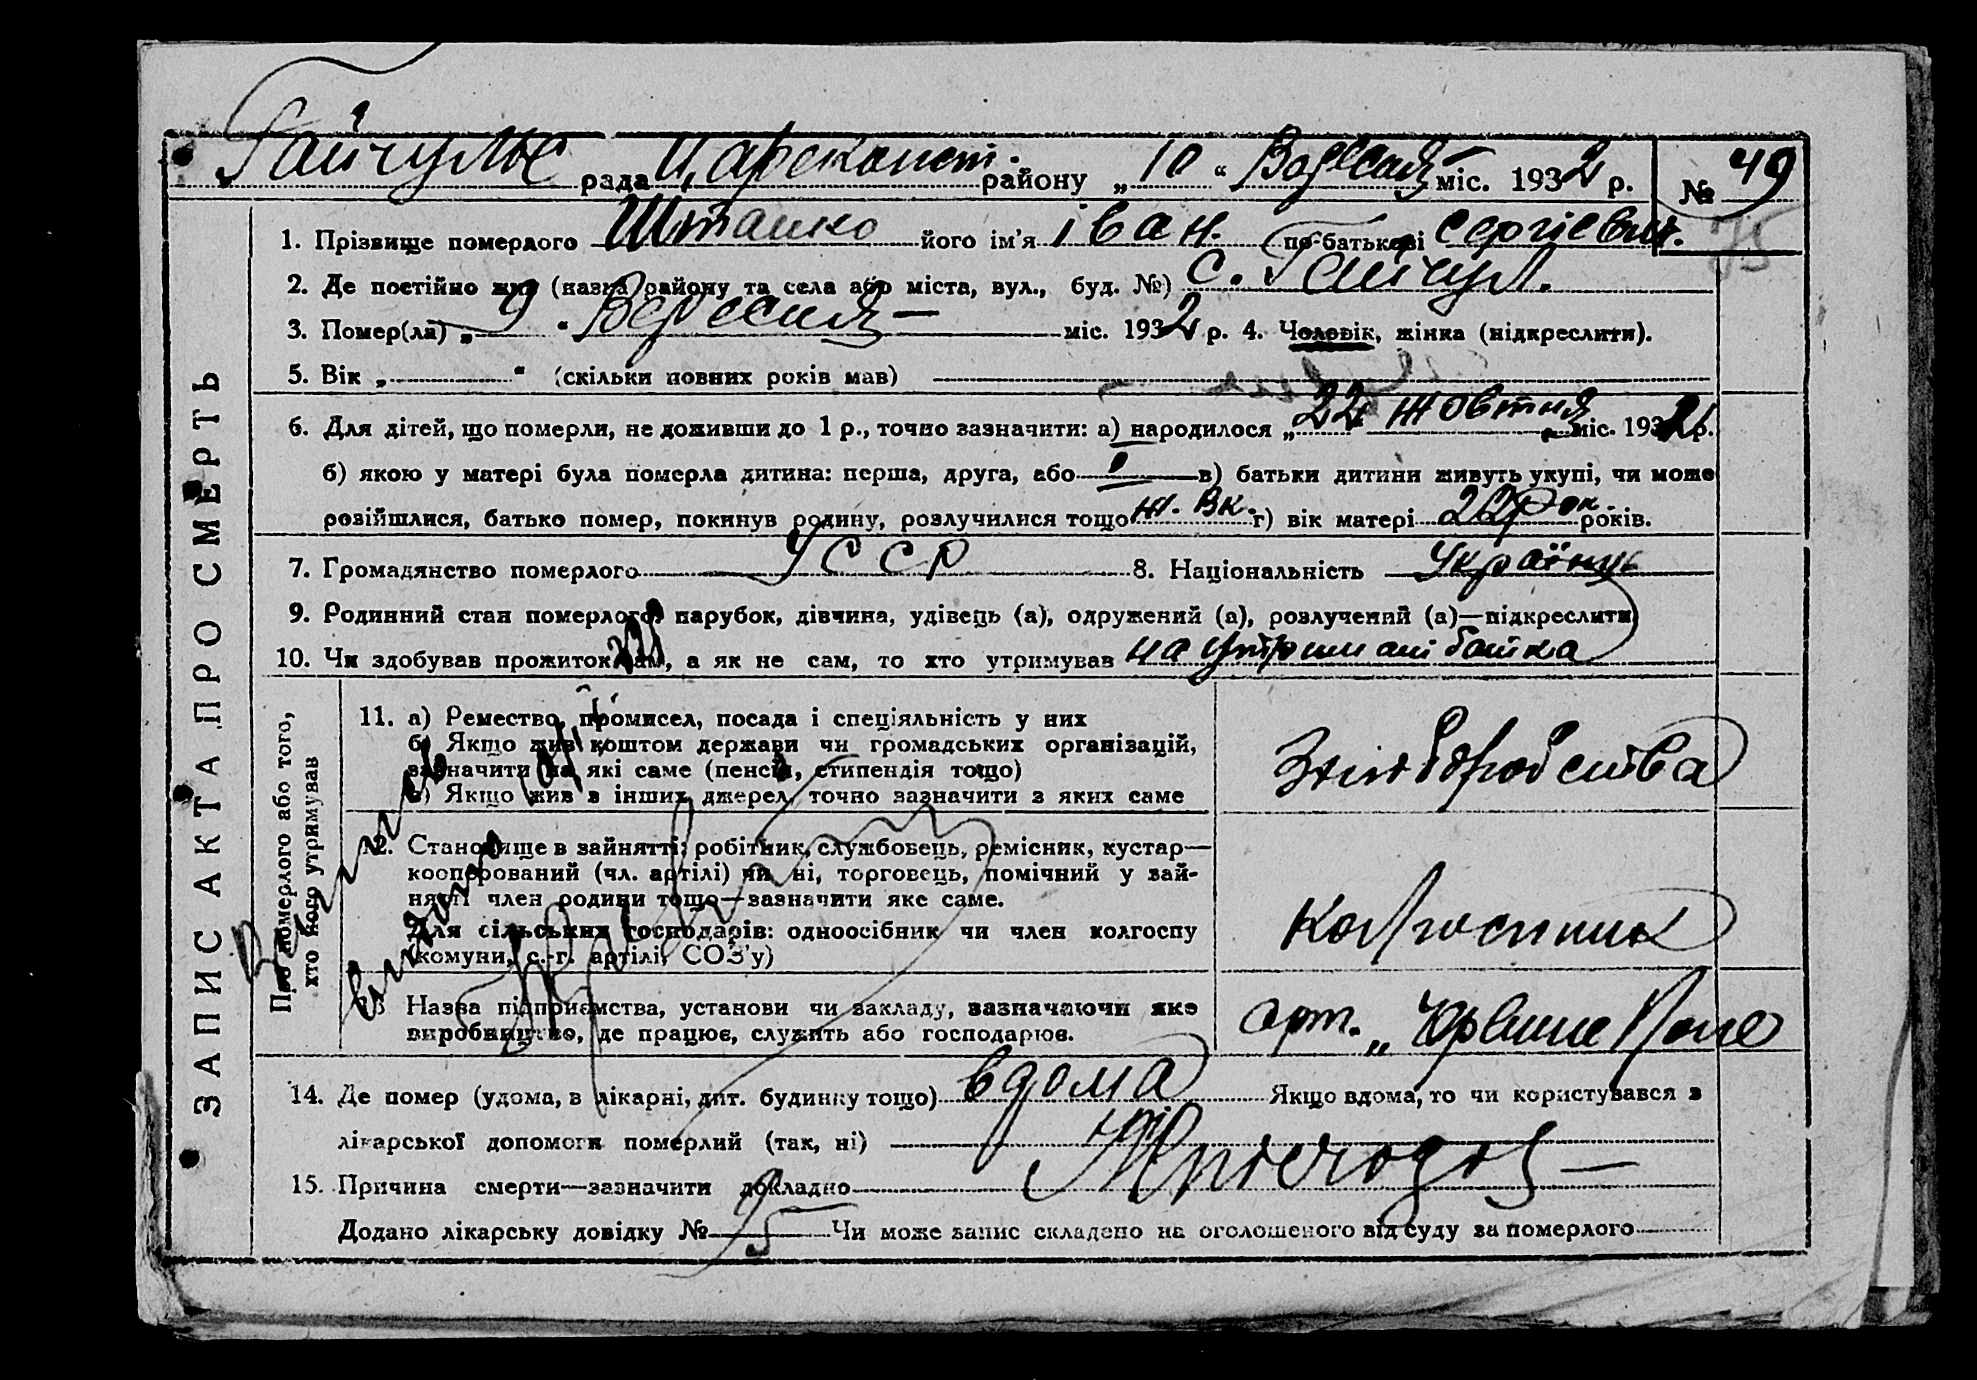 Гайчульс рада Царсконст. району „10“ Вересня міс. 1932 р. № 49
1. Прізвище померлого Штанько його ім'я Іван. по-батькові Сергієвич.
2. Де постійно жив (назва району та села або міста, вул., буд. №) с. Гайчул.
3. Помер(ла) „9“ Вересня — міс. 1932 р. 4. Чоловік, жінка (підкреслити).
5. Вік „ “ (скільки повних років мав)
6. Для дітей, що померли, не доживши до 1 р., точно зазначити: а) народилося „22“ Жовтня міс. 1931 р.
б) якою у матері була померла дитина: перша, друга, або I в) батьки дитини живуть укупі, чи може
розійшлися, батько помер, покинув родину, розлучилися тощо ж. вк. г) вік матері 22 рок. років.
7. Громадянство померлого УССР 8. Національність Українц
9. Родинний стан померлого: парубок, дівчина, удівець (а), одружений (а), розлучений (а)—підкреслити
10. Чи здобував прожиток сам, а як не сам, то хто утримував на утриманні батька
ЗАПИС АКТА ПРО СМЕРТЬ
Про померлого або того,
хто його утримував
11. а) Ремество, промисел, посада і спеціяльність у них
б) Якщо жив коштом держави чи громадських організацій,
зазначити на які саме (пенсія, стипендія тощо)
в) Якщо жив з інших джерел, точно зазначити з яких саме
Хліборобства
12. Становище в зайнятті: робітник, службовець, ремісник, кустар—
кооперований (чл. артілі) чи ні, торговець, помічний у зай-
нятті член родини тощо—зазначити яке саме.
Для сільських господарів: одноосібник чи член колгоспу
(комуни, с.-г. артілі, СОЗ'у)
Колгоспник
13 Назва підприємства, установи чи закладу, зазначаючи яке
виробництво, де працює, служить або господарює.
арт. „Червоне Поле
14. Де помер (удома, в лікарні, дит. будинку тощо) вдома Якщо вдома, то чи користувався з
лікарської допомоги померлий (так, ні) ні
15. Причина смерти—зазначити докладно
Додано лікарську довідку № Чи може запис складено на оголошеного від суду за померлого